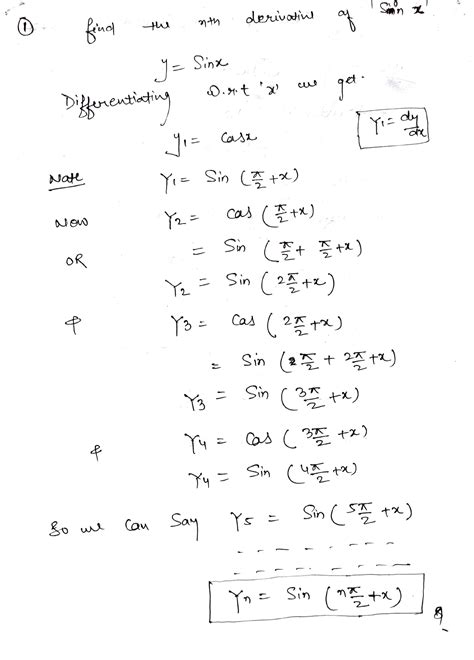 ① find the nth derivative of 'Sin x'
y = Sinx
Differentiating w.r.t 'x' we get.
y1 = cosx
Y1 = dy/dx
Note Y1 = Sin (π/2 + x)
Now Y2 = cos (π/2 + x)
OR = Sin (π/2 + π/2 + x)
Y2 = Sin (2π/2 + x)
& Y3 = cos (2π/2 + x)
= Sin (π/2 + 2π/2 + x)
Y3 = Sin (3π/2 + x)
& Y4 = cos (3π/2 + x)
Y4 = Sin (4π/2 + x)
So we can say Y5 = Sin (5π/2 + x)
Yn = Sin (nπ/2 + x)